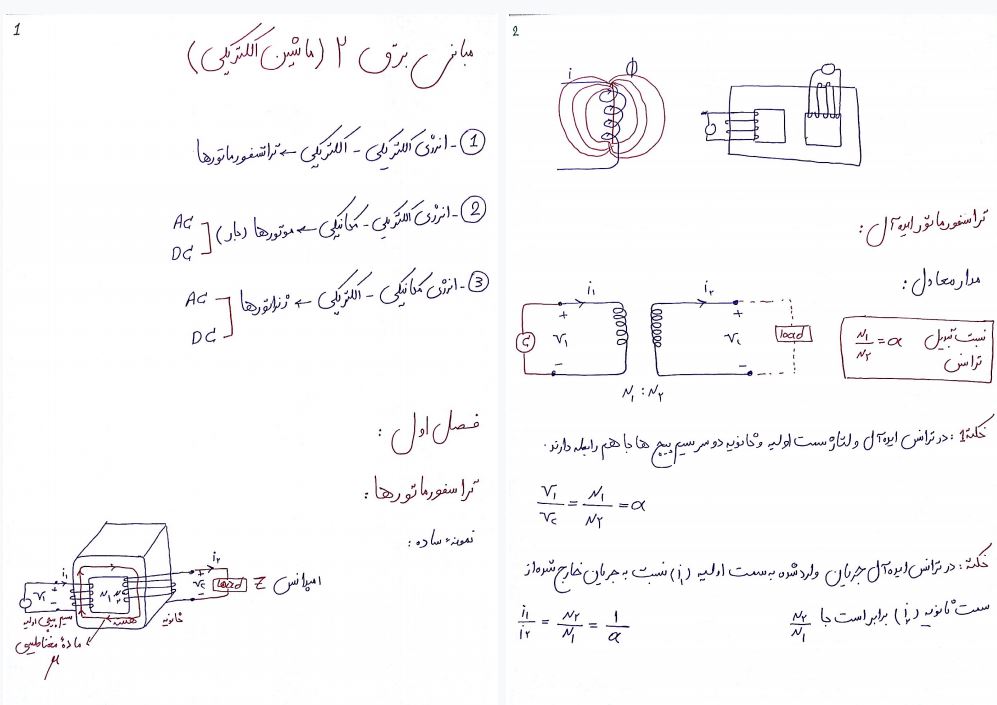 1
مبانی برق ۲ (ماشین الکتریکی)
① - انرژی الکتریکی - الکتریکی ← ترانسفورماتورها
② - انرژی الکتریکی - مکانیکی ← موتورها (بار)
AC
DC
③ - انرژی مکانیکی - الکتریکی ← ژنراتورها
AC
DC
فصل اول :
ترانسفورماتورها :
نمونه ساده :
i₁ i₂
+ V₁ - N₁ N₂ + V₂ - load Z امپدانس
سیم پیچ اولیه هسته ثانویه
ماده مغناطیسی
μ
2
i ϕ
ترانسفورماتور ایده آل :
مدار معادل :
i₁ i₂
+ V₁ - + V₂ - load
N₁ : N₂
نسبت تبدیل ترانس N₁/N₂ = a
نکته 1 : در ترانس ایده آل ولتاژ سمت اولیه و ثانویه دو سر سیم پیچ ها با هم رابطه دارند .
V₁/V₂ = N₁/N₂ = a
نکته : در ترانس ایده آل جریان وارد شده به سمت اولیه (i₁) نسبت به جریان خارج شده از
سمت ثانویه (i₂) برابر است با N₂/N₁
i₁/i₂ = N₂/N₁ = 1/a